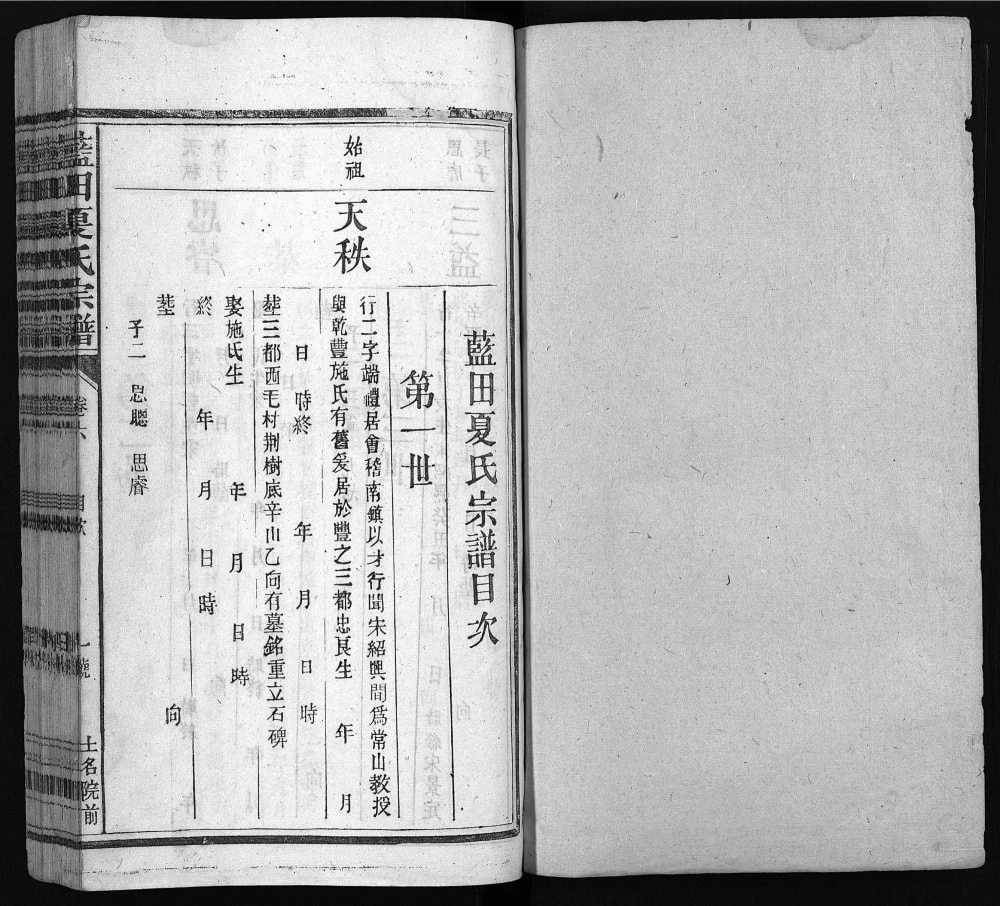 藍田夏氏宗譜目次
第一世
始祖
天秩
行二字端禮居會稽南鎮以才行聞宋紹興間爲常山教授
與乾豐施氏有舊爰居於豐之三都忠良生 年 月
日 時終 年 月 日 時
塟三都西毛村荆樹底辛山乙向有墓銘重立石碑
娶施氏生 年 月 日 時
終 年 月 日 時
塟 向
子二 思聰 思睿
藍田夏氏宗譜
卷六
目次
土名院前